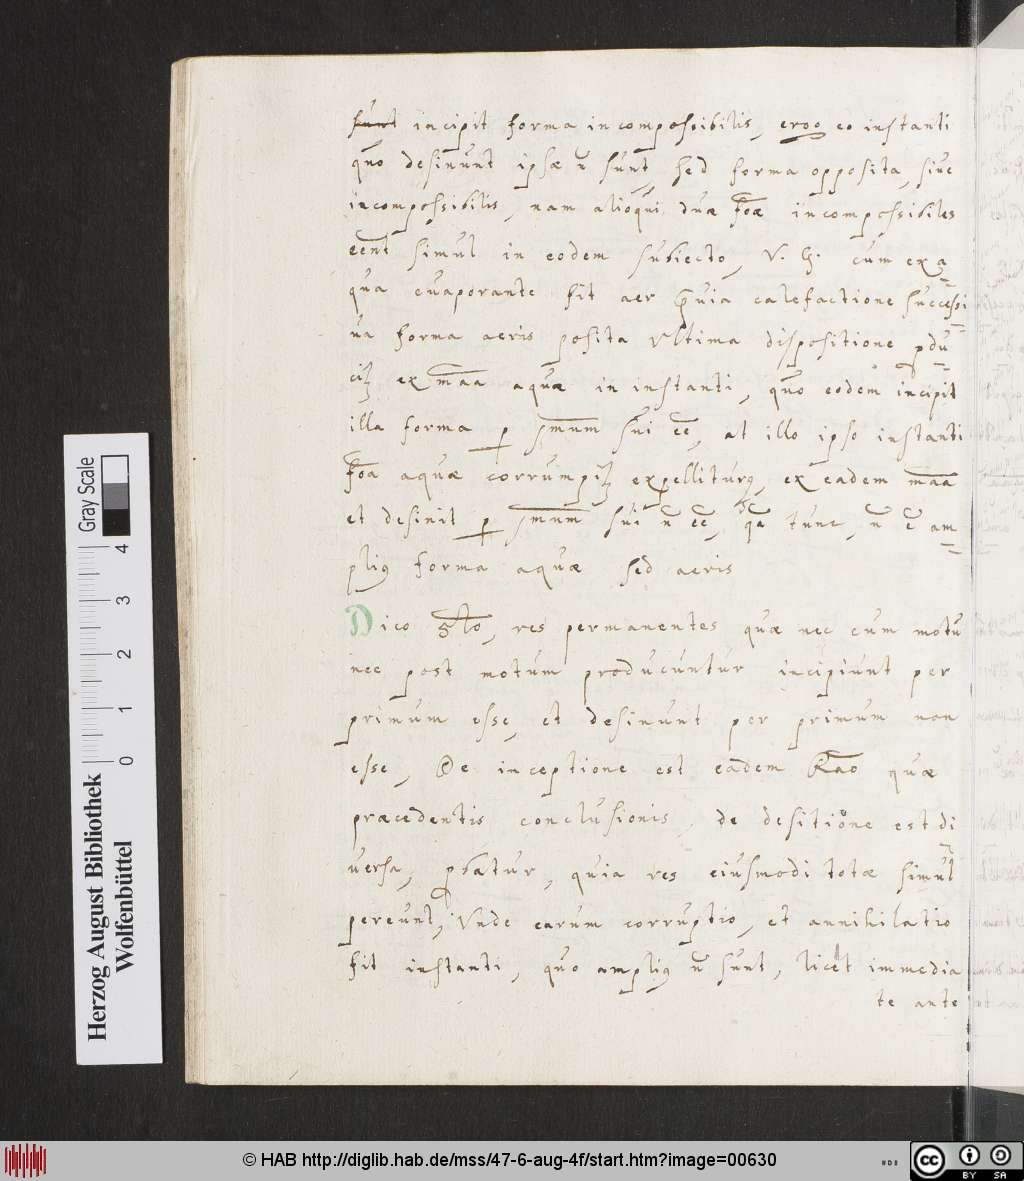 sunt incipit forma incompossibilis, ergo eo instanti
quo desinunt ipsæ n̄ sunt, sed forma opposita, siue
incompossibilis, nam alioqui duæ foæ incompossibiles
eent simul in eodem subiecto, V. G. cum ex a=
qua euaporante fit aer prævia calefactione successi=
ua forma aeris posita ultima dispositione pdu=
cit ex maa aquæ in instanti, quo eodem incipit
illa forma p smum sui ee, at illo ipso instanti
foa aquæ corrumpit expelliturq, ex eadem maa
et desinit p smum sui n̄ ee, qa tunc, n̄ e am=
plius forma aquæ sed aeris
Dico 5to, res permanentes quæ nec cum motu
nec post motum producuntur incipiunt per
primum esse, et desinunt per primum non
esse, De inceptione est eadem Rao quæ
præcedentis conclusionis, de desitione est di=
uersa, pbatur, quia res eiusmodi totæ simul
pereunt, Vnde earum corruptio, et annihilatio
fit instanti, quo amplius n̄ sunt, licet immedia
te ante
Gray Scale
0 1 2 3 4
Herzog August Bibliothek
Wolfenbüttel
© HAB http://diglib.hab.de/mss/47-6-aug-4f/start.htm?image=00630
cc BY SA